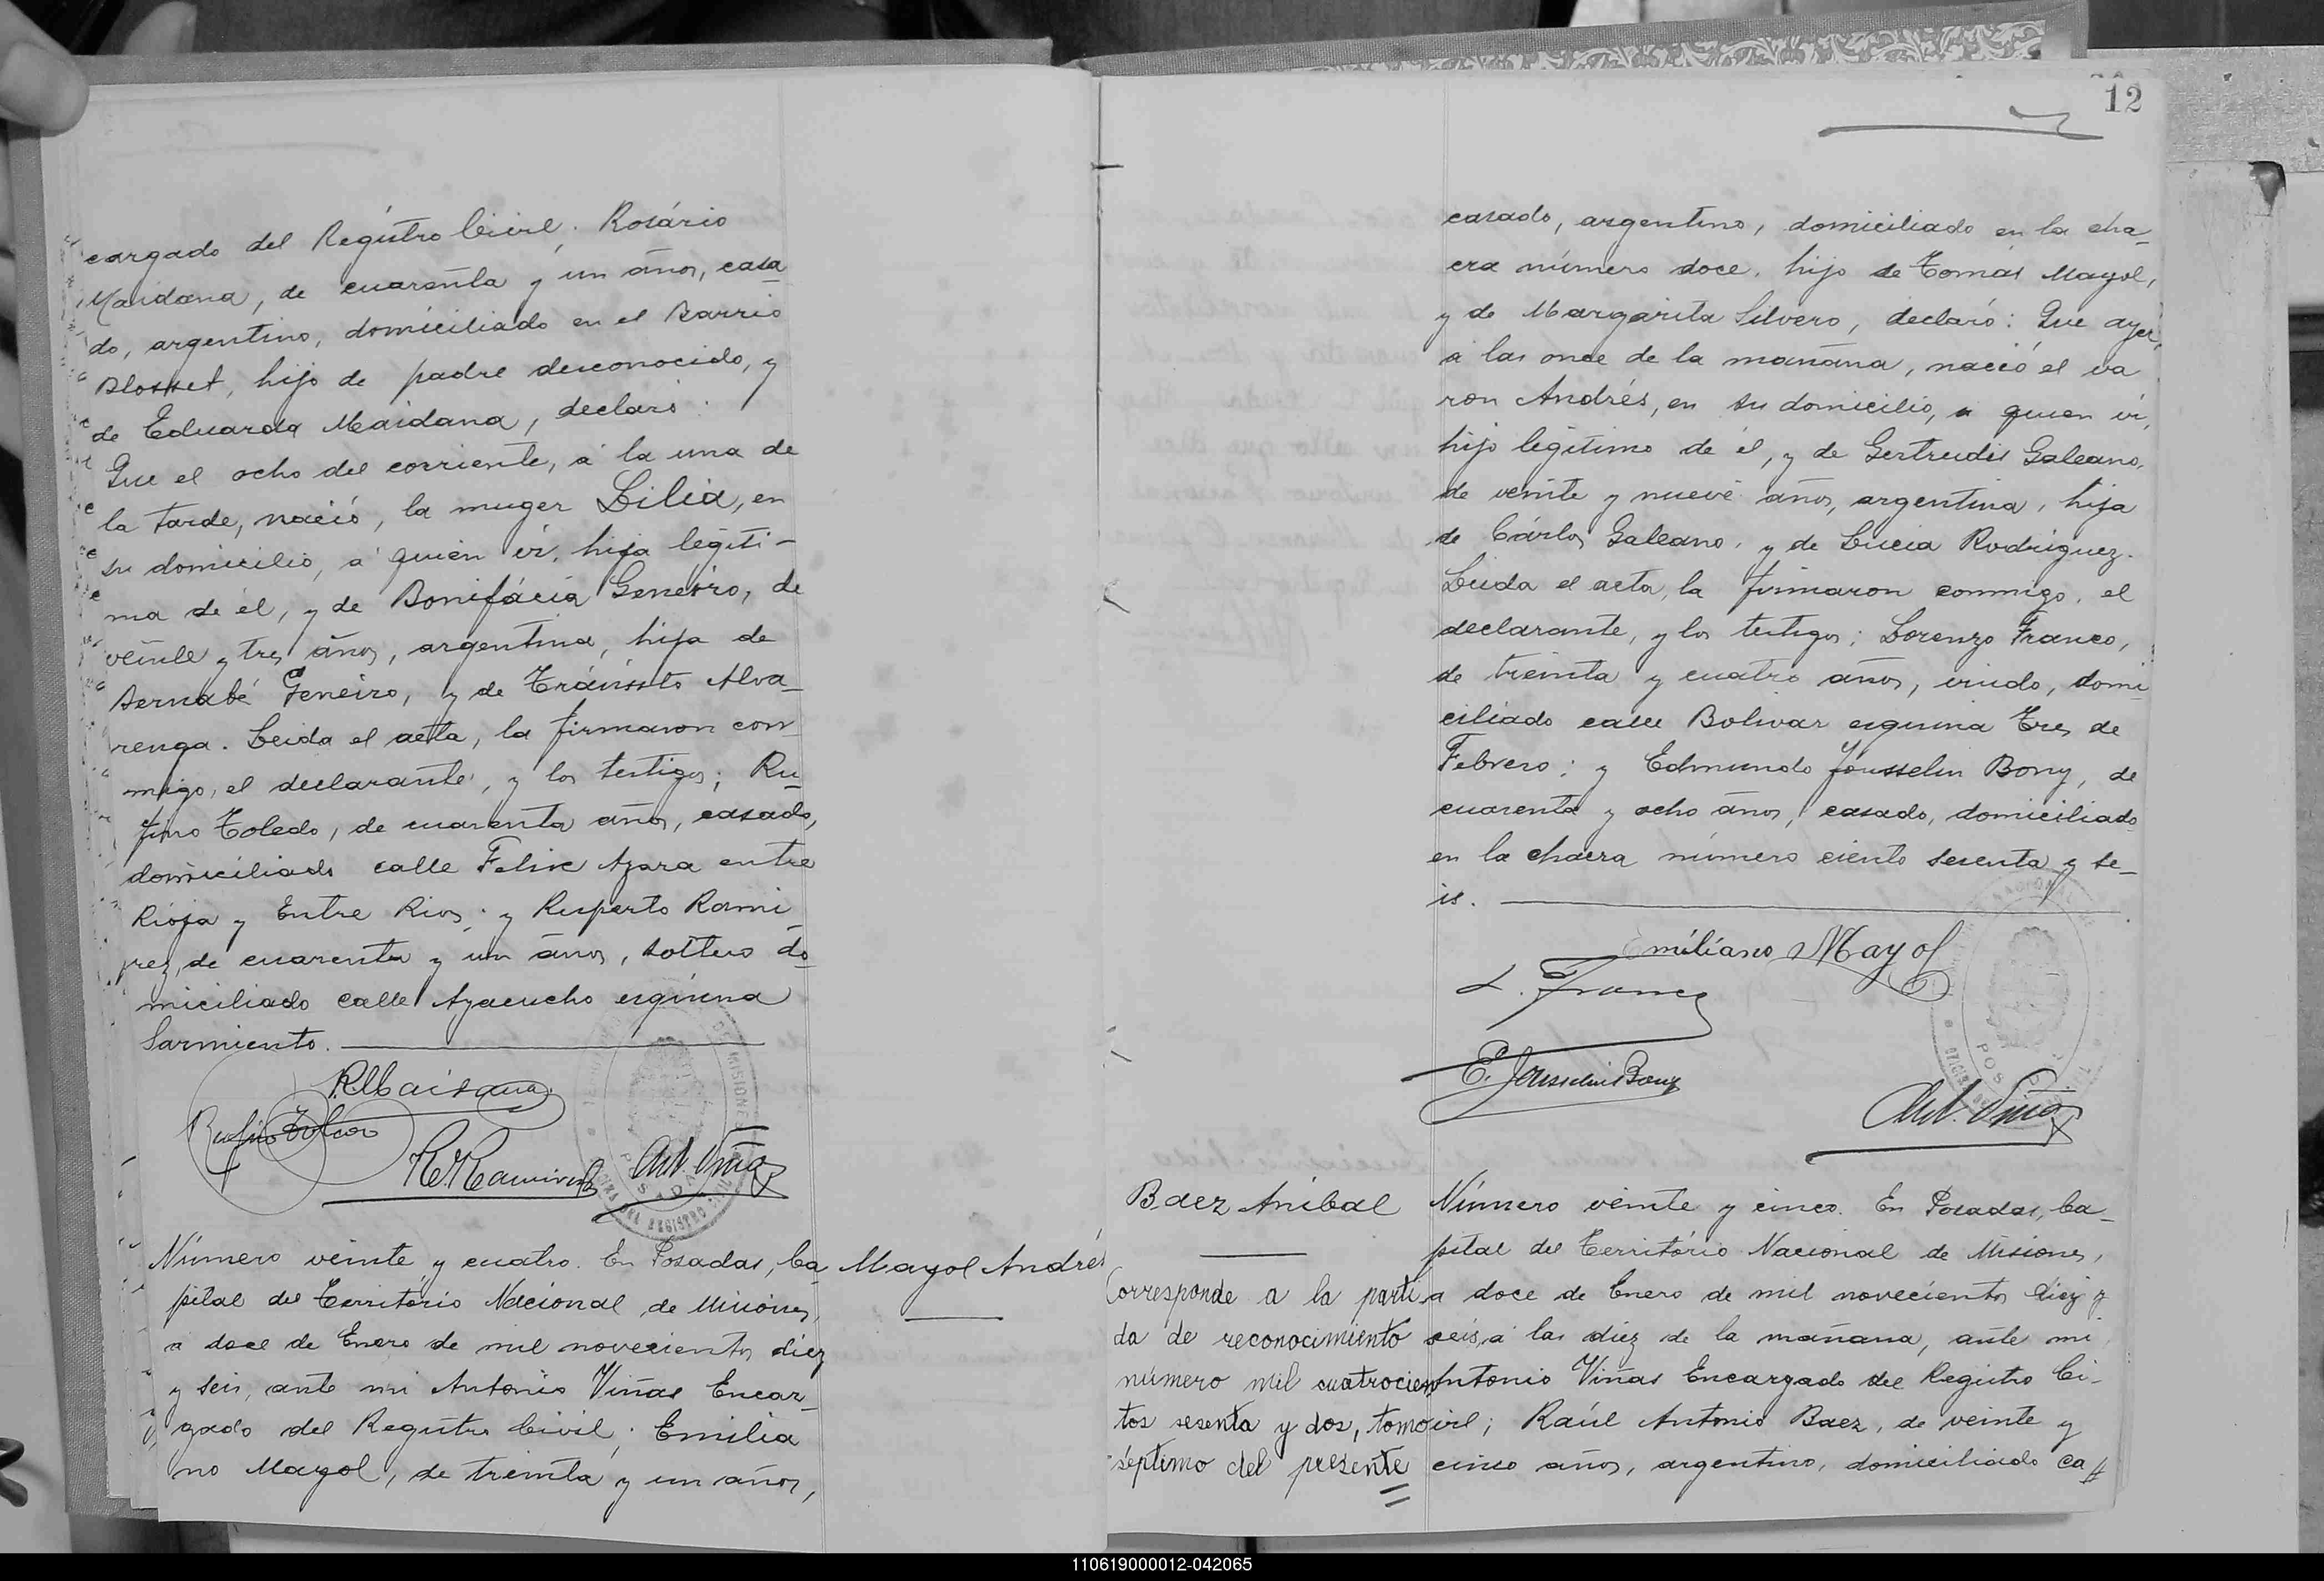 cargado del Registro Civil; Rosário
Maidana, de cuarenta y un años, casa-
do, argentino, domiciliado en el Barrio
Blosset, hijo de padre desconocido, y
de Eduarda Maidana, declaró:
Que el ocho del corriente, á la una de
la tarde, nació, la muger Lilia, en
su domicilio, a quien vi, hija legiti-
ma de él, y de Bonifácia Geneiro, de
veinte y tres años, argentina, hija de
Bernabé Geneiro, y de Tránsito Alva-
renga. Leida el acta, la firmaron con-
migo, el declarante, y los testigos; Ru-
fino Toledo, de cuarenta años, casado,
domiciliado calle Felix Azara entre
Rioja y Entre Rios; y Ruperto Rami-
rez, de cuarenta y un años, soltero do-
miciliado calle Ayacucho esquina
Sarmiento.
R. Maidana
Rufino Toledo
R. Ramirez Ant. Viñas
Número veinte y cuatro. En Posadas, Ca-
Mayol Andrés
pital del Território Nacional de Misiones,
a doce de Enero de mil novecientos diez
y seis, ante mi Antonio Viñas Encar-
gado del Registro Civil; Emilia
no Mayol, de treinta y un años,
12
casado, argentino, domiciliado en la cha-
cra número doce, hijo de Tomás Mayol,
y de Margarita Silvero, declaró: Que ayer,
á las once de la mañana, nació el va
ron Andrés, en su domicilio, a quien vi,
hijo legitimo de él, y de Gertrudis Galeano,
de veinte y nueve años, argentina, hija
de Cárlos Galeano, y de Lucia Rodriguez.
Leida el acta, la firmaron conmigo, el
declarante, y los testigos; Lorenzo Franco,
de treinta y cuatro años, viudo, domi
ciliado calle Bolivar esquina Tres de
Febrero; y Edmundo Jousselin Bony, de
cuarenta y ocho años, casado, domiciliado
en la chacra número ciento sesenta y se-
is.
Emiliano Mayol
L. Franco
E. Jousselin Bony
Ant. Viñas
Baez Anibal
Corresponde a la parti
da de reconocimiento
número mil cuatrocien
tos sesenta y dos, tomo
séptimo del presente
Número veinte y cinco. En Posadas, Ca-
pital del Território Nacional de Misiones,
a doce de Enero de mil novecientos diez y
seis, á las diez de la mañana, ante mi
Antonio Viñas Encargado del Registro Ci-
vil; Raúl Antonio Baez, de veinte y
cinco años, argentino, domiciliado ca
110619000012-042065